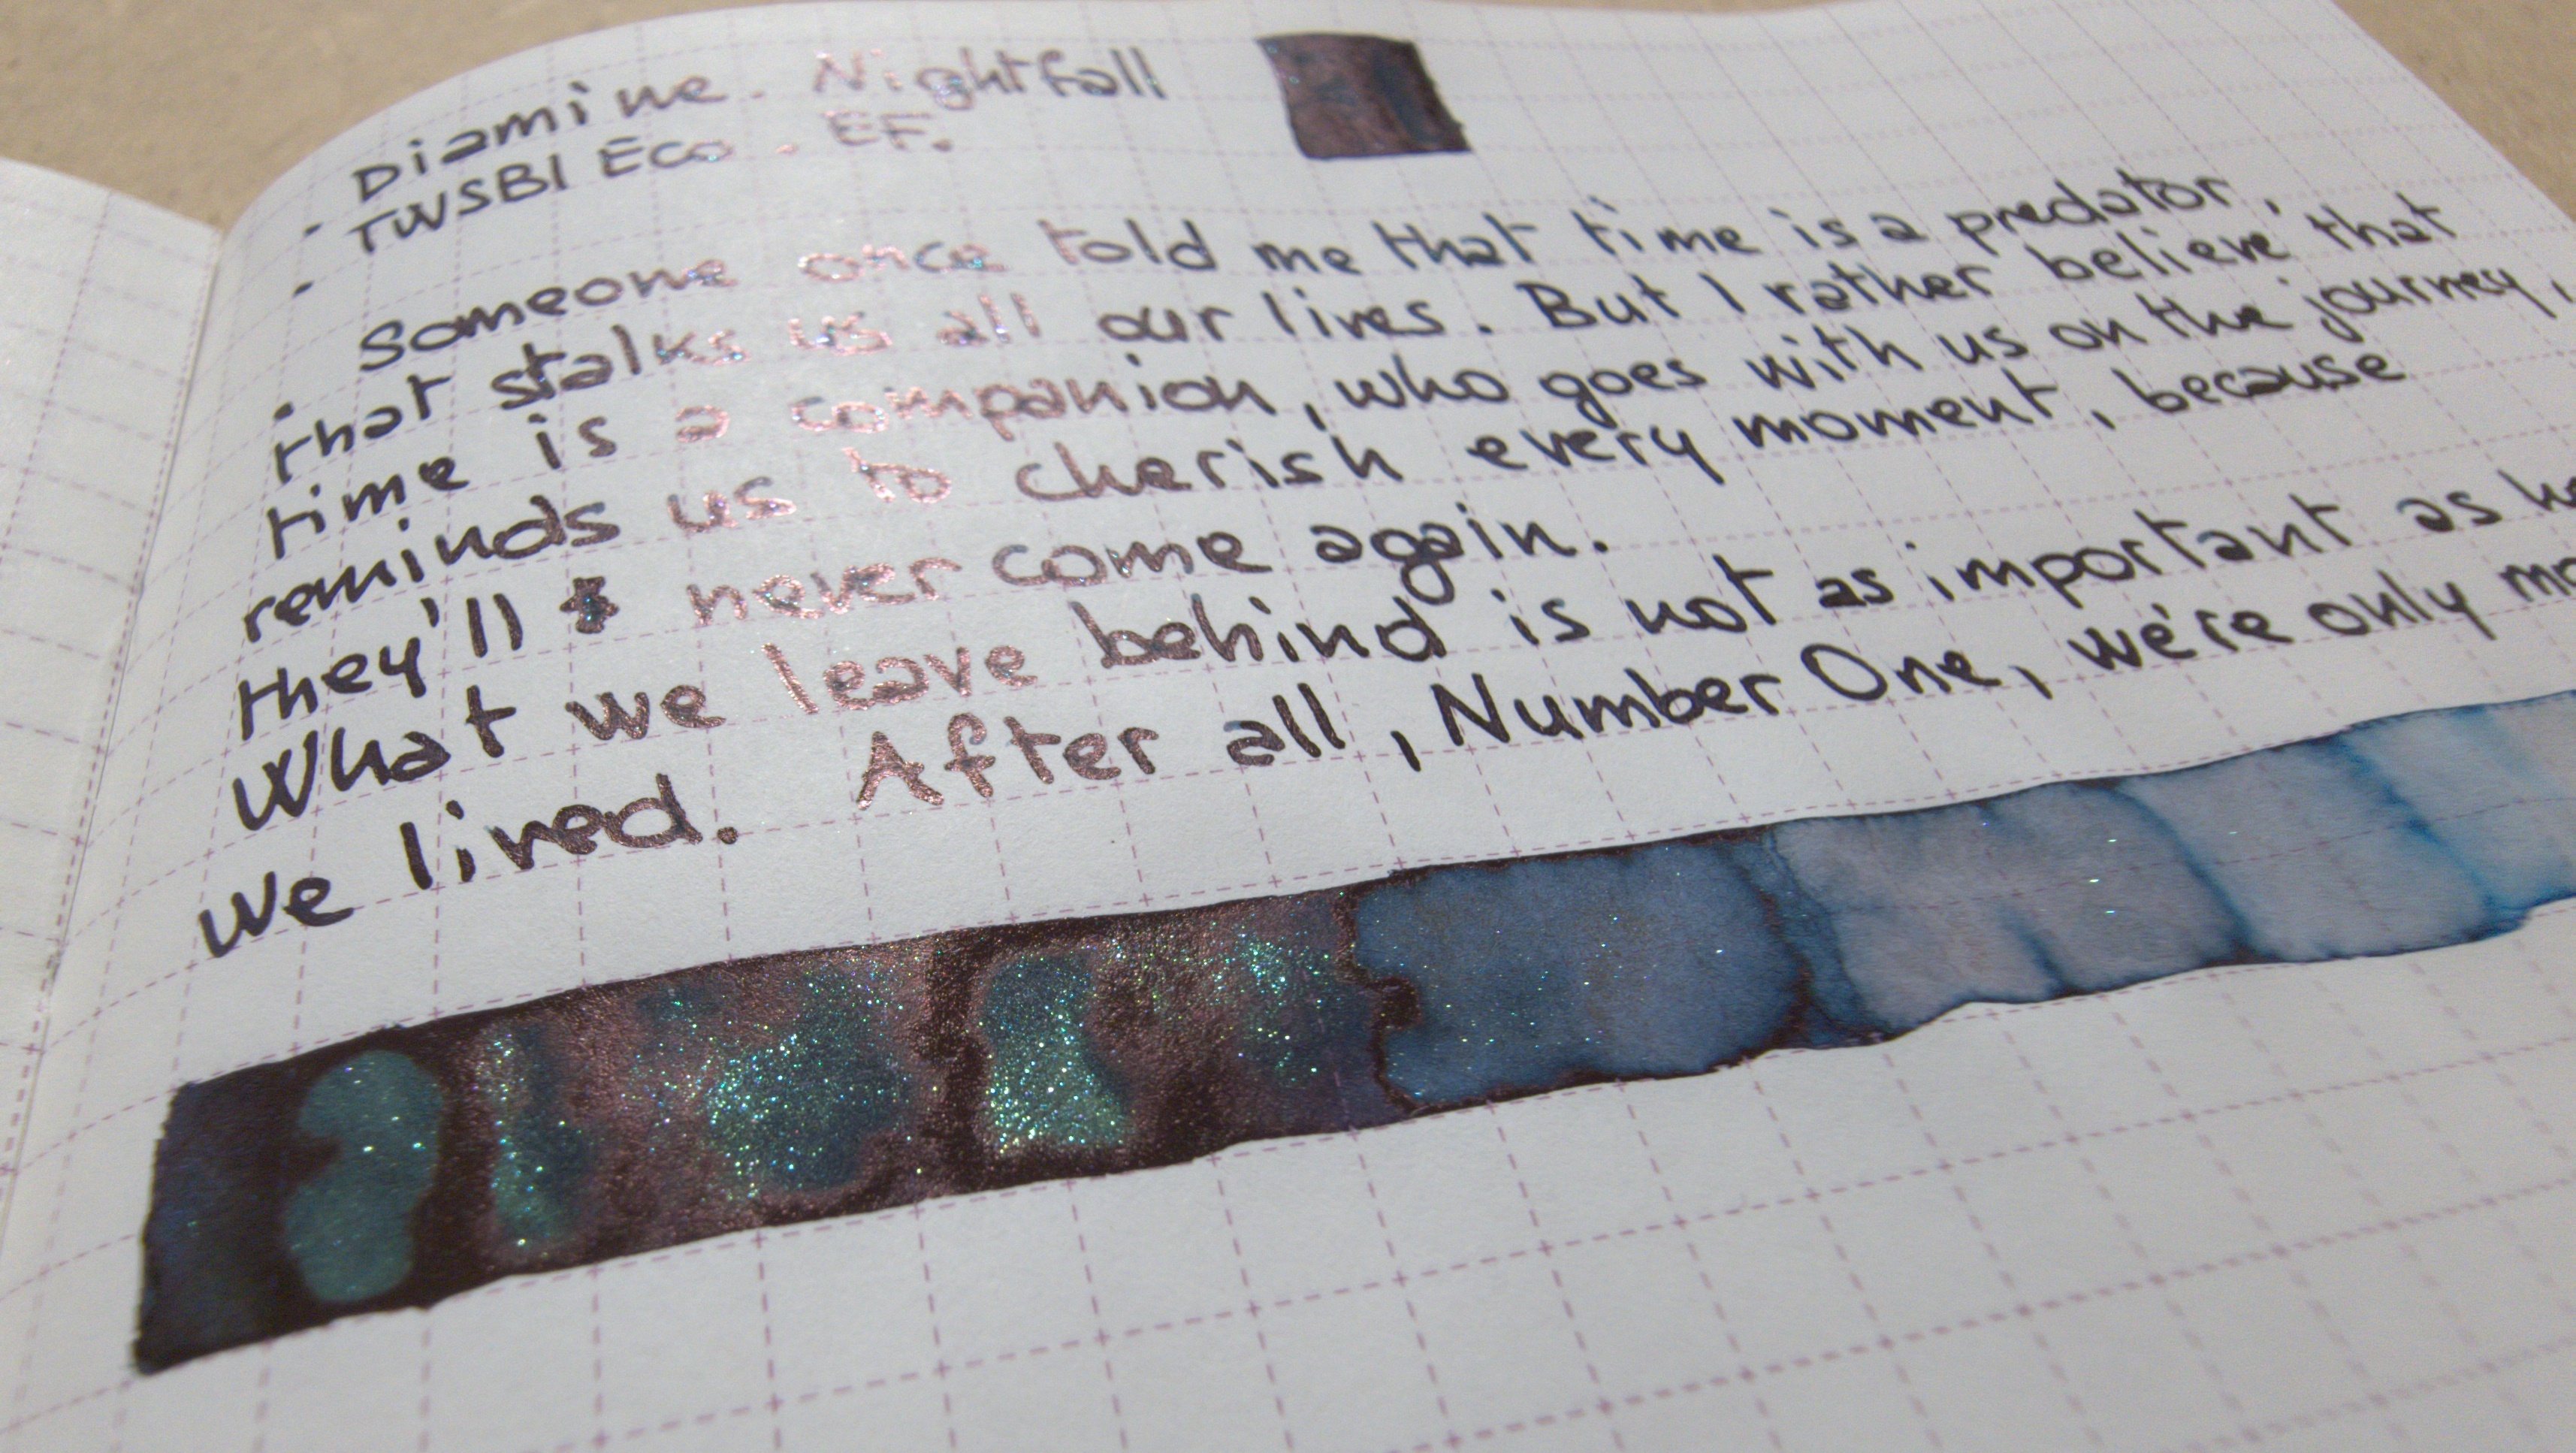 · Diamine. Nightfall
· TWSBI Eco. EF.
· Someone once told me that time is a predator,
that stalks us all our lives. But I rather believe that
time is a companion, who goes with us on the journey,
reminds us to cherish every moment, because
they'll never come again.
What we leave behind is not as important as
we lived. After all, Number One, we're only